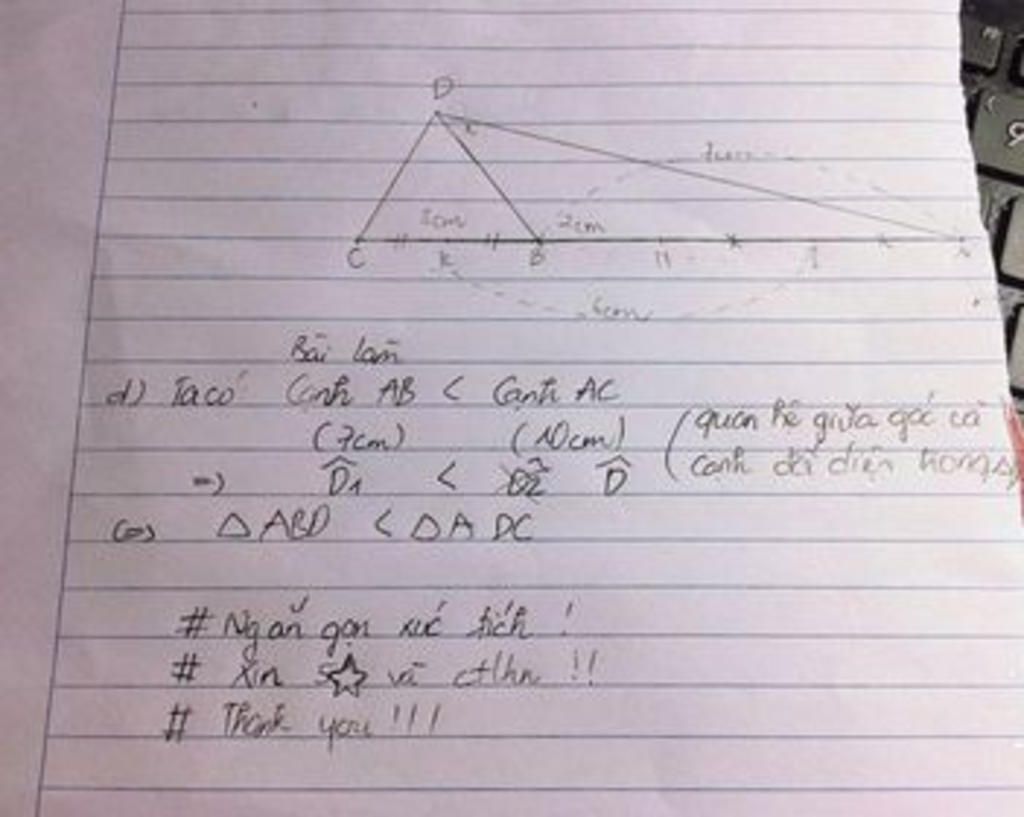 D
1
7cm
3cm 2cm
C K B H I A
6cm
Bài làm
d) Ta có Cạnh AB < Cạnh AC
(7cm) (10cm) (quan hệ giữa góc và
=> D̂1 < D̂ cạnh đối diện trong Δ)
<=> Δ ABD < Δ A DC
# Ngắn gọn xúc tích !
# Xin 5☆ và ctlhn !!
# Thank you !!!